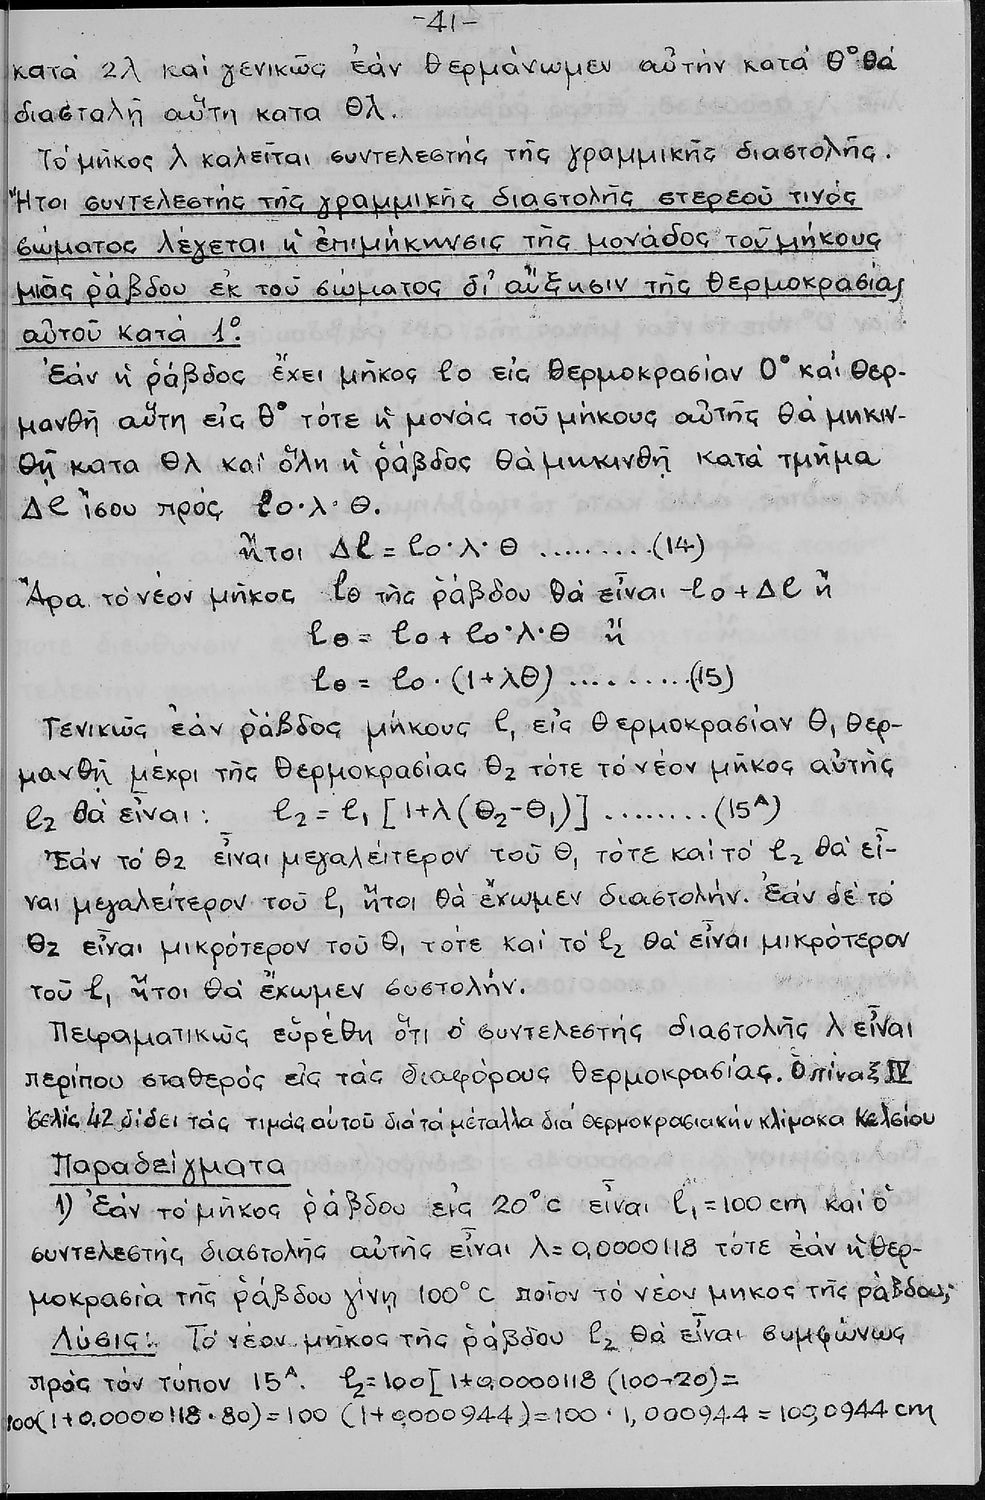 -41-
κατά 2λ καί γενικῶς ἐάν θερμάνωμεν αὐτήν κατά θ° θά
διασταλῇ αὕτη κατα θλ.
Τό μῆκος λ καλεῖται συντελεστής τῆς γραμμικῆς διαστολῆς.
Ἤτοι συντελεστής τῆς γραμμικῆς διαστολῆς στερεοῦ τινός
σώματος λέγεται ἡ ἐπιμήκυνσις τῆς μονάδος τοῦ μήκους
μιᾶς ράβδου ἐκ τοῦ σώματος δι' αὔξησιν τῆς θερμοκρασίας
αὐτοῦ κατά 1°.
Ἐάν ἡ ράβδος ἔχει μῆκος lo εἰς θερμοκρασίαν 0° καί θερ-
μανθῇ αὕτη εἰς θ° τότε ἡ μονάς τοῦ μήκους αὐτῆς θά μηκυν-
θῇ κατα θλ καί ὅλη ἡ ράβδος θά μηκυνθῇ κατά τμῆμα
Δl ἴσου πρός lo·λ·θ.
ἤτοι Δl = lo·λ·θ ..........(14)
Ἄρα τό νέον μῆκος lθ τῆς ράβδου θά εἶναι lo + Δl ἤ
lθ = lo + lo·λ·θ ἤ
lθ = lo·(1+λθ) ..........(15)
Γενικῶς ἐάν ράβδος μήκους l₁ εἰς θερμοκρασίαν θ₁ θερ-
μανθῇ μέχρι τῆς θερμοκρασίας θ2 τότε τό νέον μῆκος αὐτῆς
l2 θά εἶναι: l2 = l₁ [1+λ(θ2-θ₁)] ........(15ᴬ)
Ἐάν τό θ2 εἶναι μεγαλείτερον τοῦ θ₁ τότε καί τό l2 θά εἶ-
ναι μεγαλείτερον τοῦ l₁ ἤτοι θά ἔχωμεν διαστολήν. Ἐάν δέ τό
θ2 εἶναι μικρότερον τοῦ θ₁ τότε καί τό l2 θά εἶναι μικρότερον
τοῦ l₁ ἤτοι θά ἔχωμεν συστολήν.
Πειραματικῶς εὑρέθη ὅτι ὁ συντελεστής διαστολῆς λ εἶναι
περίπου σταθερός εἰς τάς διαφόρους θερμοκρασίας. Ὁ πίναξ IV
σελίς 42 δίδει τάς τιμάς αὐτοῦ διά τά μέταλλα διά θερμοκρασιακήν κλίμακα Κελσίου
Παραδείγματα
1) Ἐάν τό μῆκος ράβδου εἰς 20°C εἶναι l₁ = 100 cm καί ὁ
συντελεστής διαστολῆς αὐτῆς εἶναι λ = 0,0000118 τότε ἐάν ἡ θερ-
μοκρασία τῆς ράβδου γίνῃ 100°C ποῖον τό νέον μηκος τῆς ράβδου;
Λύσις: Τό νέον μῆκος τῆς ράβδου l2 θά εἶναι συμφώνως
πρός τόν τύπον 15ᴬ. l2=100[1+0,0000118 (100-20)=
100(1+0,0000118·80)=100 (1+0,000944)=100·1,000944=100,0944 cm